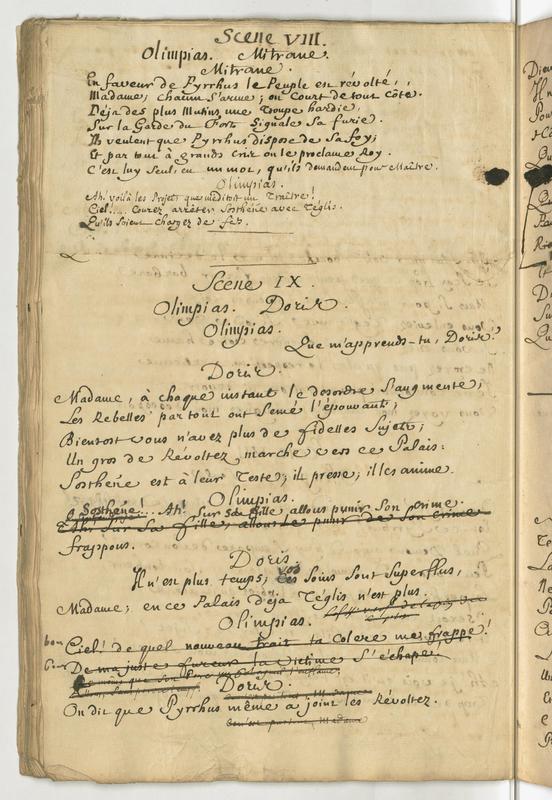 Scene VIII.
Olimpias. Mitrane.
Mitrane.
En faveur de Pyrrhus le Peuple est révolté,
Madame; chacun s'arme; on Court de tout côté.
Déja des plus Mutins une Troupe hardie,
Sur la Garde du Fort Signale Sa furie.
Ils veulent que Pyrrhus dispose de Sa foy;
Et par tout à grands Cris on le proclame Roy.
C'est luy Seul, en un mot, qu'ils demandent pour Maître.
Olimpias.
Ah! voilà les Projets que méditoit un Traître!
Ciel.... Courez arrêter Sosthéne avec Téglis.
Qu'ils Soient Chargez de fers.
Scene IX.
Olimpias. Doris.
Olimpias.
Que m'apprends-tu, Doris?
Doris.
Madame, à chaque instant le desordre S'augmente;
Les Rebelles par tout ont Semé l'épouvante;
Bientost vous n'avez plus de fidelles Sujets;
Un gros de Révoltez marche vers ce Palais:
Sosthéne est à leur Teste; il presse; il les anime.
Olimpias.
o Sosthéne!... Ah! Sur Sa fille, allons punir Son Crime.
Ah! Sur Sa fille, allons le punir de Son Crime
frappons.
Doris.
Il n'est plus temps; vos Soins Sont Superflus,
Madame; en ce Palais déja Téglis n'est plus.
Olimpias.
bon Ciel! de quel nouveau trait ta Colere me frappe!
bon De ma juste fureur la victime S'échape.
Doris.
On dit que Pyrrhus même a joint les Révoltez.